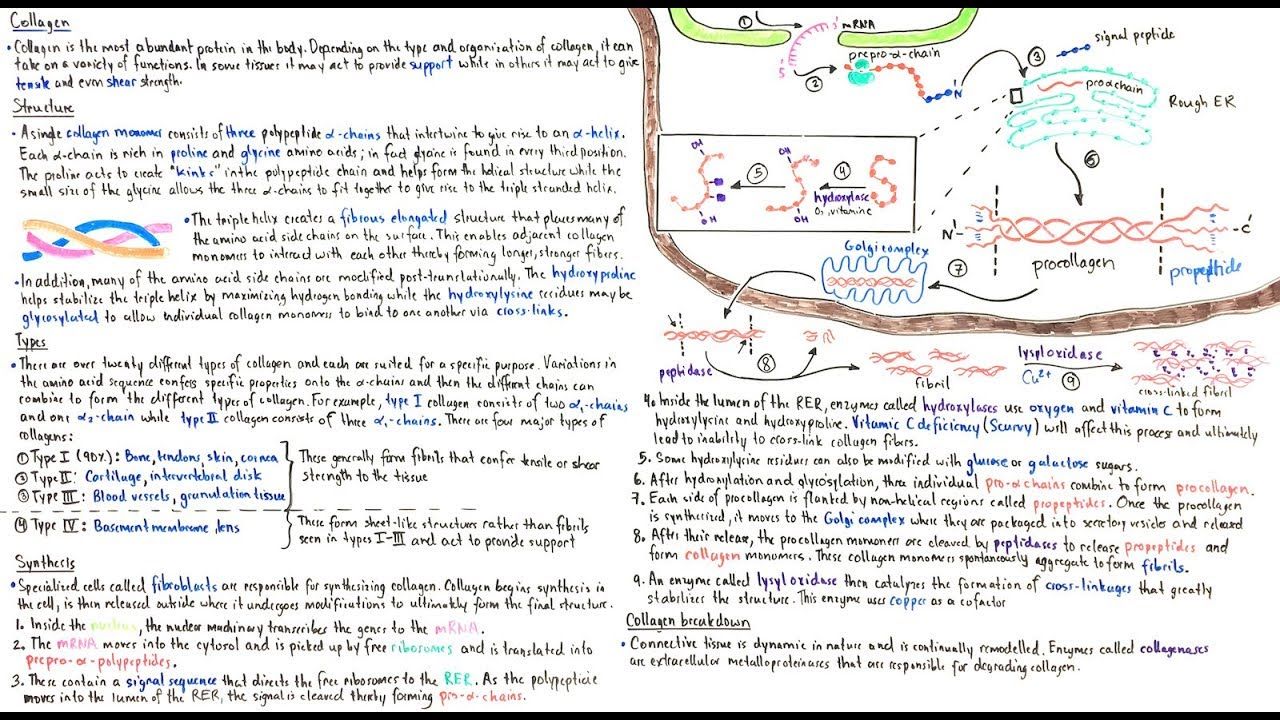 Collagen
• Collagen is the most abundant protein in the body. Depending on the type and organization of collagen, it can
take on a variety of functions. In some tissues it may act to provide support while in others it may act to give
tensile and even shear strength.
Structure
• A single collagen monomer consists of three polypeptide α-chains that intertwine to give rise to an α-helix.
Each α-chain is rich in proline and glycine amino acids; in fact glycine is found in every third position.
The proline acts to create "kinks" in the polypeptide chain and helps form the helical structure while the
small size of the glycine allows the three α-chains to fit together to give rise to the triple stranded helix.
• The triple helix creates a fibrous elongated structure that places many of
the amino acid side chains on the surface. This enables adjacent collagen
monomers to interact with each other thereby forming longer, stronger fibers.
• In addition, many of the amino acid side chains are modified post-translationally. The hydroxyproline
helps stabilize the triple helix by maximizing hydrogen bonding while the hydroxylysine residues may be
glycosylated to allow individual collagen monomers to bind to one another via cross-links.
Types
• There are over twenty different types of collagen and each are suited for a specific purpose. Variations in
the amino acid sequence confers specific properties onto the α-chains and then the different chains can
combine to form the different types of collagen. For example, type I collagen consists of two α₁-chains
and one α₂-chain while type II collagen consists of three α₁-chains. There are four major types of
collagens:
① Type I (90%): Bone, tendons, skin, cornea
② Type II: Cartilage, intervertebral disk
③ Type III: Blood vessels, granulation tissue
These generally form fibrils that confer tensile or shear
strength to the tissue
④ Type IV: Basement membrane, lens
These form sheet-like structures rather than fibrils
seen in types I-III and act to provide support
Synthesis
• Specialized cells called fibroblasts are responsible for synthesizing collagen. Collagen begins synthesis in
the cell, is then released outside where it undergoes modifications to ultimately form the final structure.
1. Inside the nucleus, the nuclear machinary transcribes the genes to the mRNA.
2. The mRNA moves into the cytosol and is picked up by free ribosomes and is translated into
prepro-α-polypeptides.
3. These contain a signal sequence that directs the free ribosomes to the RER. As the polypeptide
moves into the lumen of the RER, the signal is cleaved thereby forming pro-α-chains.
①
3'
mRNA
5'
②
prepro-α-chain
N
③
signal peptide
proαchain
Rough ER
OH
⑤
OH
OH
④
hydroxylase
O₂, vitamin C
OH
⑥
N-
-C
procollagen
propeptide
Golgi complex
⑦
peptidase
⑧
fibril
lysyl oxidase
Cu²⁺
⑨
cross-linked fibril
4. Inside the lumen of the RER, enzymes called hydroxylases use oxygen and vitamin C to form
hydroxylysine and hydroxyproline. Vitamic C deficiency (Scurvy) will affect this process and ultimately
lead to inability to cross-link collagen fibers.
5. Some hydroxylysine residues can also be modified with glucose or galactose sugars.
6. After hydroxylation and glycosylation, three individual pro-α chains combine to form procollagen.
7. Each side of procollagen is flanked by non-helical regions called propeptides. Once the procollagen
is synthesized, it moves to the Golgi complex where they are packaged into secretory vesicles and released
8. After their release, the procollagen monomers are cleaved by peptidases to release propeptides and
form collagen monomers. These collagen monomers spontaneously aggregate to form fibrils.
9. An enzyme called lysyl oxidase then catalyzes the formation of cross-linkages that greatly
stabilizes the structure. This enzyme uses copper as a cofactor
Collagen breakdown
• Connective tissue is dynamic in nature and is continually remodelled. Enzymes called collagenases
are extracellular metalloproteinases that are responsible for degrading collagen.